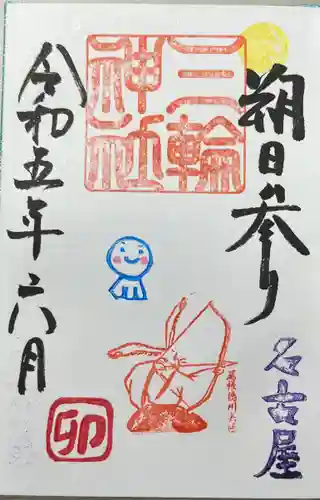 朔日参り
名古屋
三輪
神社
令和五年六月
卯